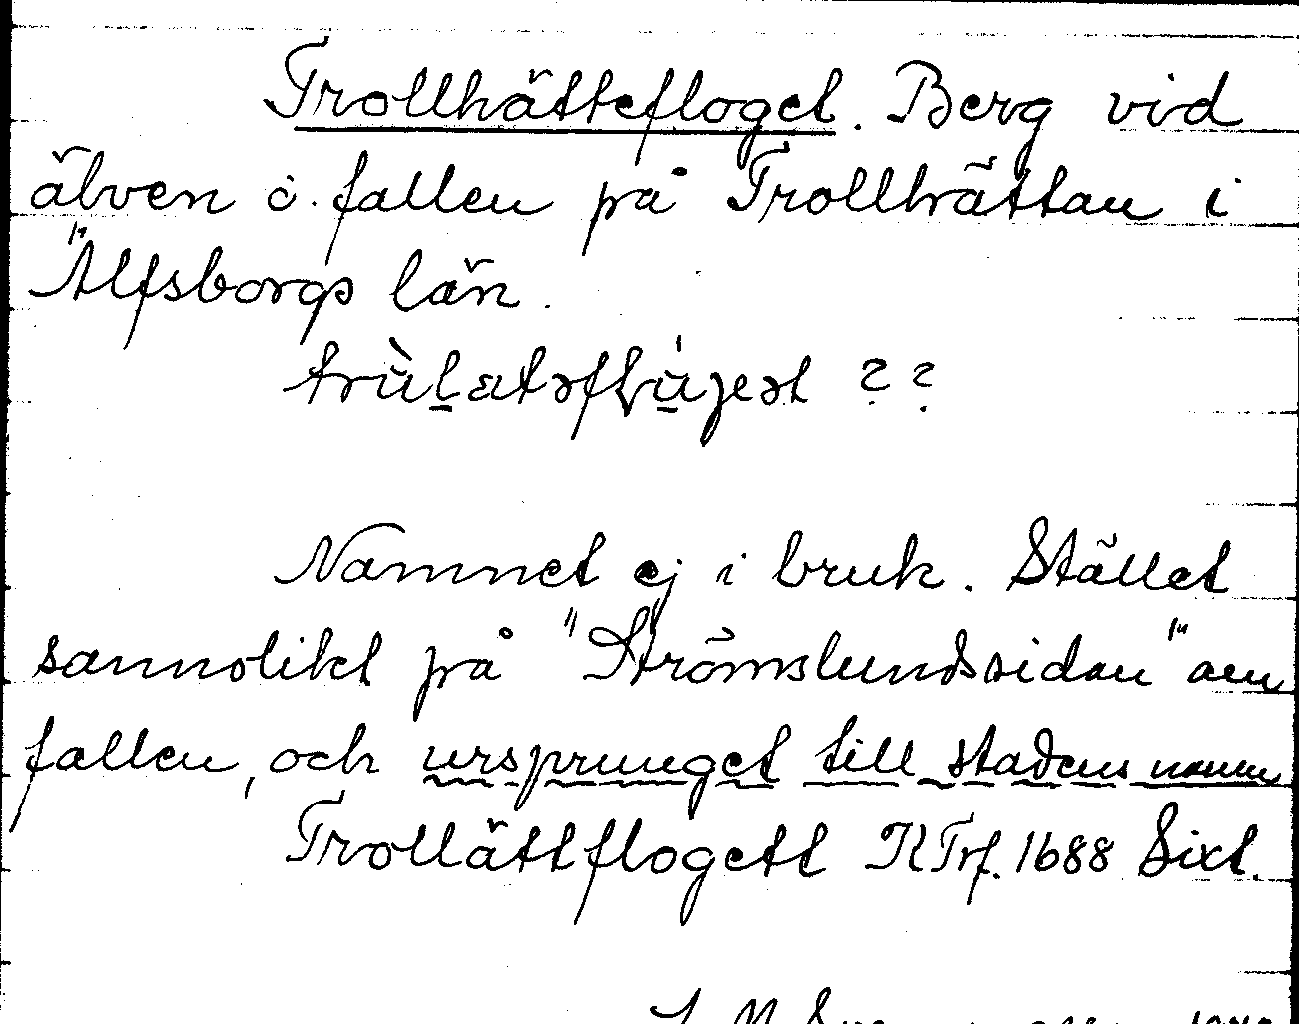 Trollhättefloget. Berg vid
älven ö. fallen på Trollhättan i
Älfsborgs län.
?  ?
Namnet ej i bruk. Stället
sannolikt på "Strömslundssidan" om
fallen, och ursprunget till stadens namn
Trollättflogett KTrf. 1688 Sixt.